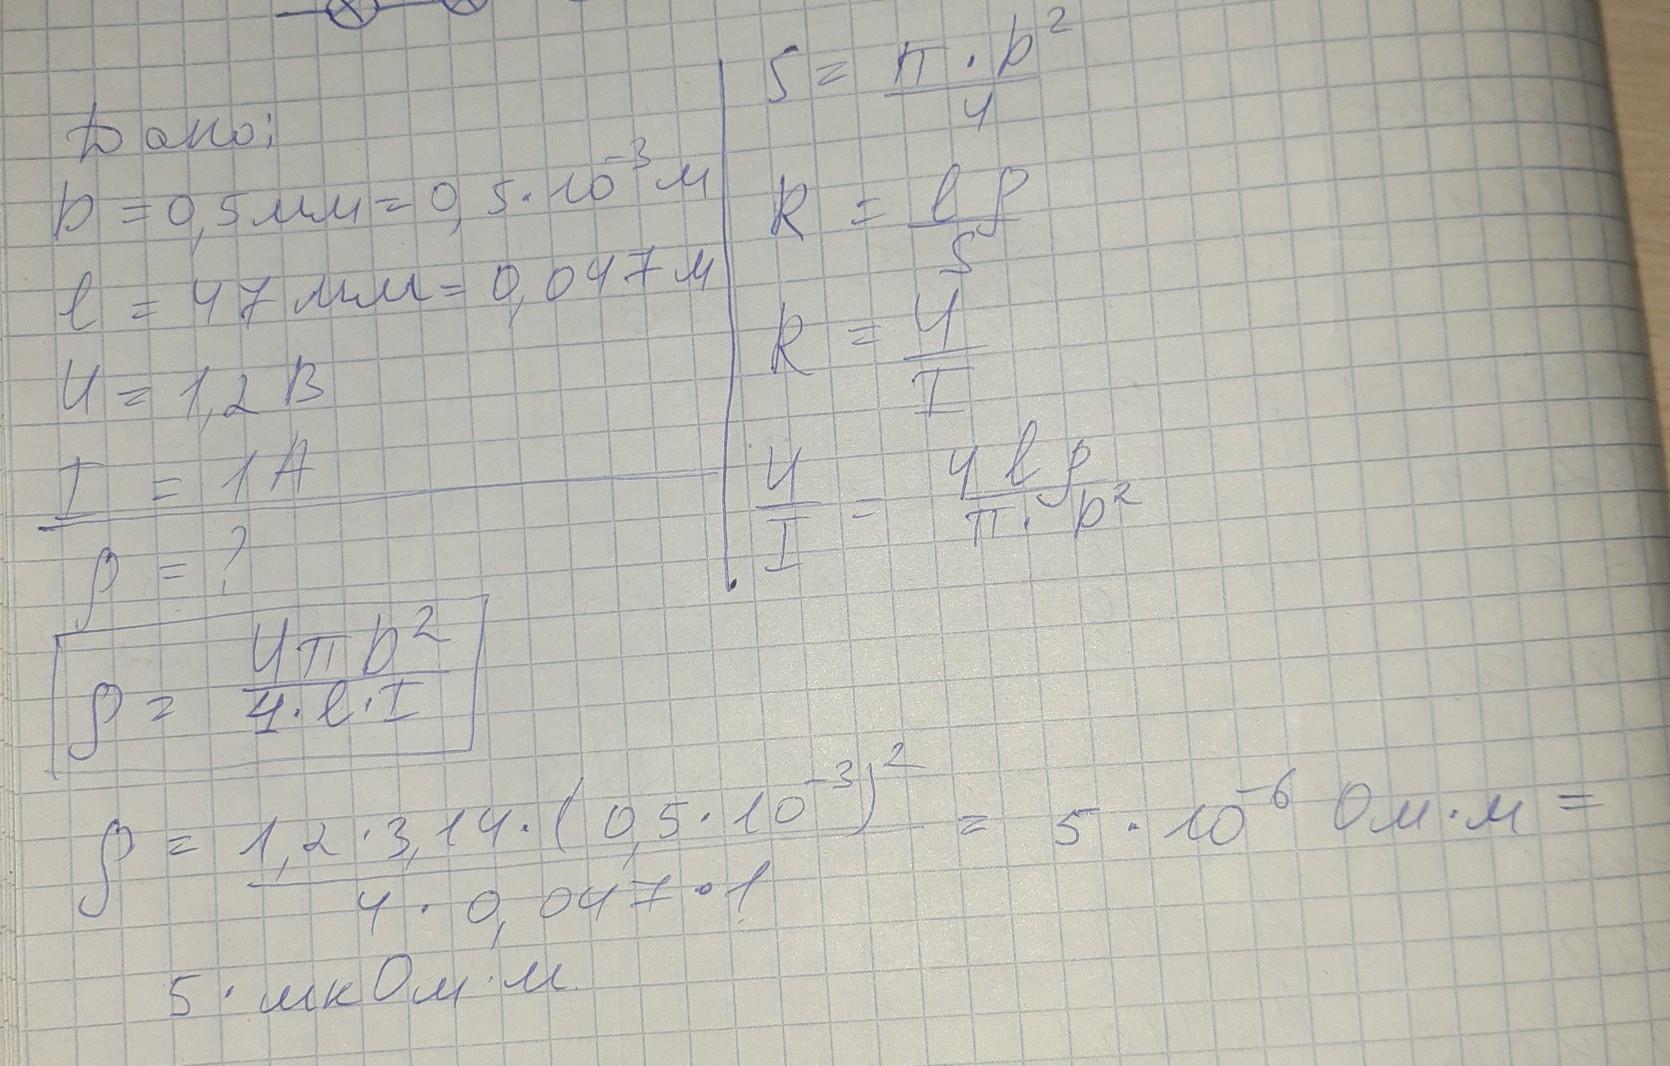 Дано:
D = 0,5мм = 0,5·10⁻³м
l = 47мм = 0,047м
U = 1,2 В
I = 1А
ρ = ?
S = π·D²/4
R = lρ/S
R = U/I
U/I = 4lρ/π·D²
ρ = UπD²/4·l·I
ρ = 1,2·3,14·(0,5·10⁻³)²/4·0,047·1 = 5·10⁻⁶ Ом·м =
5·мкОм·м